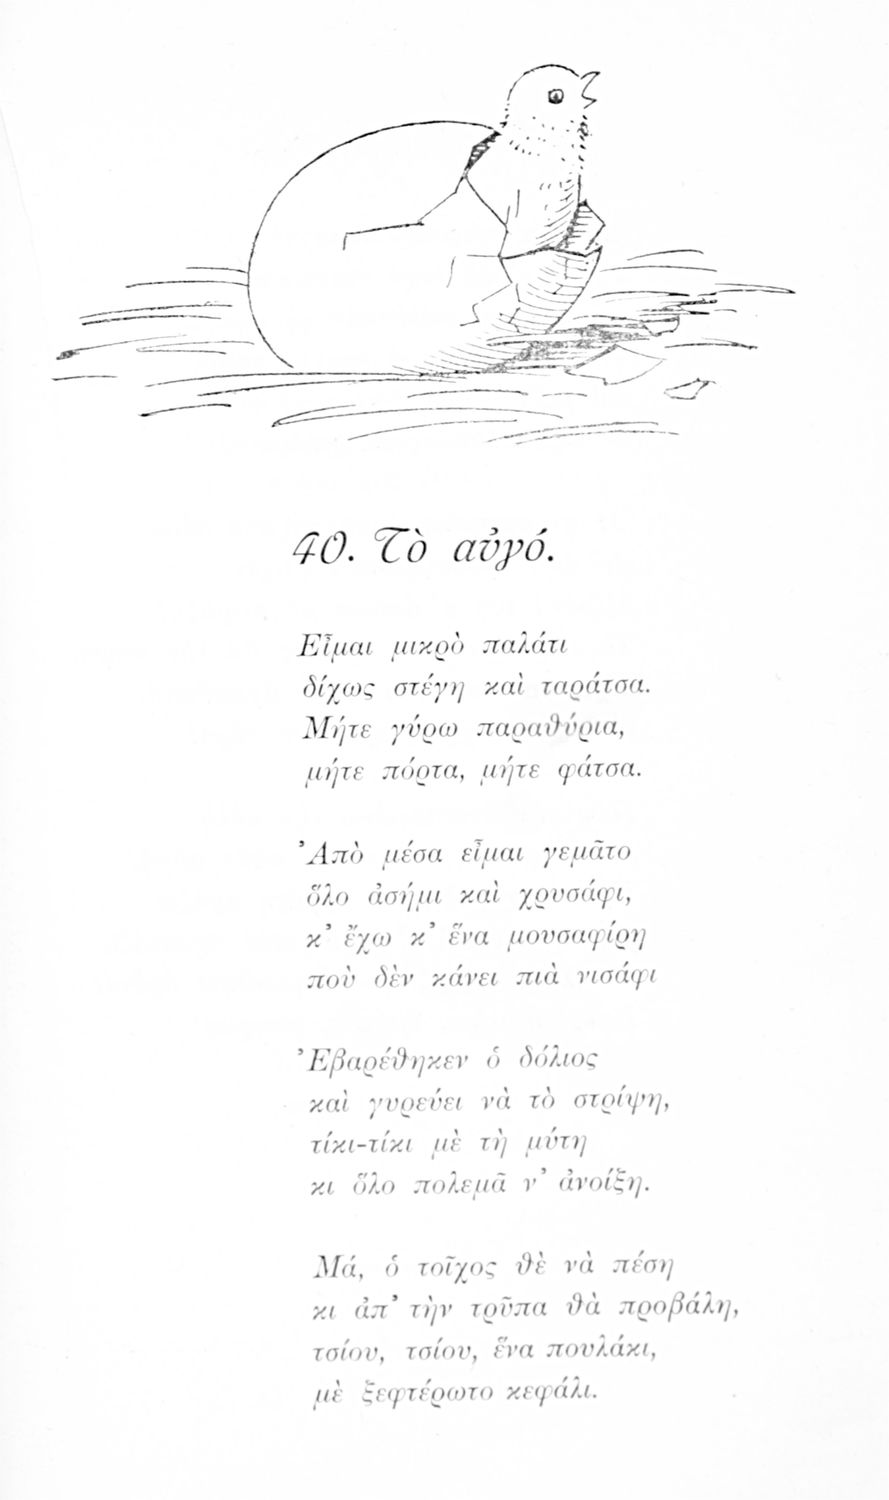 40. Τὸ αὐγό.
Εἶμαι μικρὸ παλάτι
δίχως στέγη καὶ ταράτσα.
Μήτε γύρω παραθύρια,
μήτε πόρτα, μήτε φάτσα.
Ἀπὸ μέσα εἶμαι γεμᾶτο
ὅλο ἀσήμι καὶ χρυσάφι,
κ' ἔχω κ' ἕνα μουσαφίρη
ποὺ δὲν κάνει πιὰ νισάφι
Ἐβαρέθηκεν ὁ δόλιος
καὶ γυρεύει νὰ τὸ στρίψῃ,
τίκι-τίκι μὲ τὴ μύτη
κι ὅλο πολεμᾶ ν' ἀνοίξη.
Μά, ὁ τοῖχος θὲ νὰ πέση
κι ἀπ' τὴν τρῦπα θὰ προβάλη,
τσίου, τσίου, ἕνα πουλάκι,
μὲ ξεφτέρωτο κεφάλι.